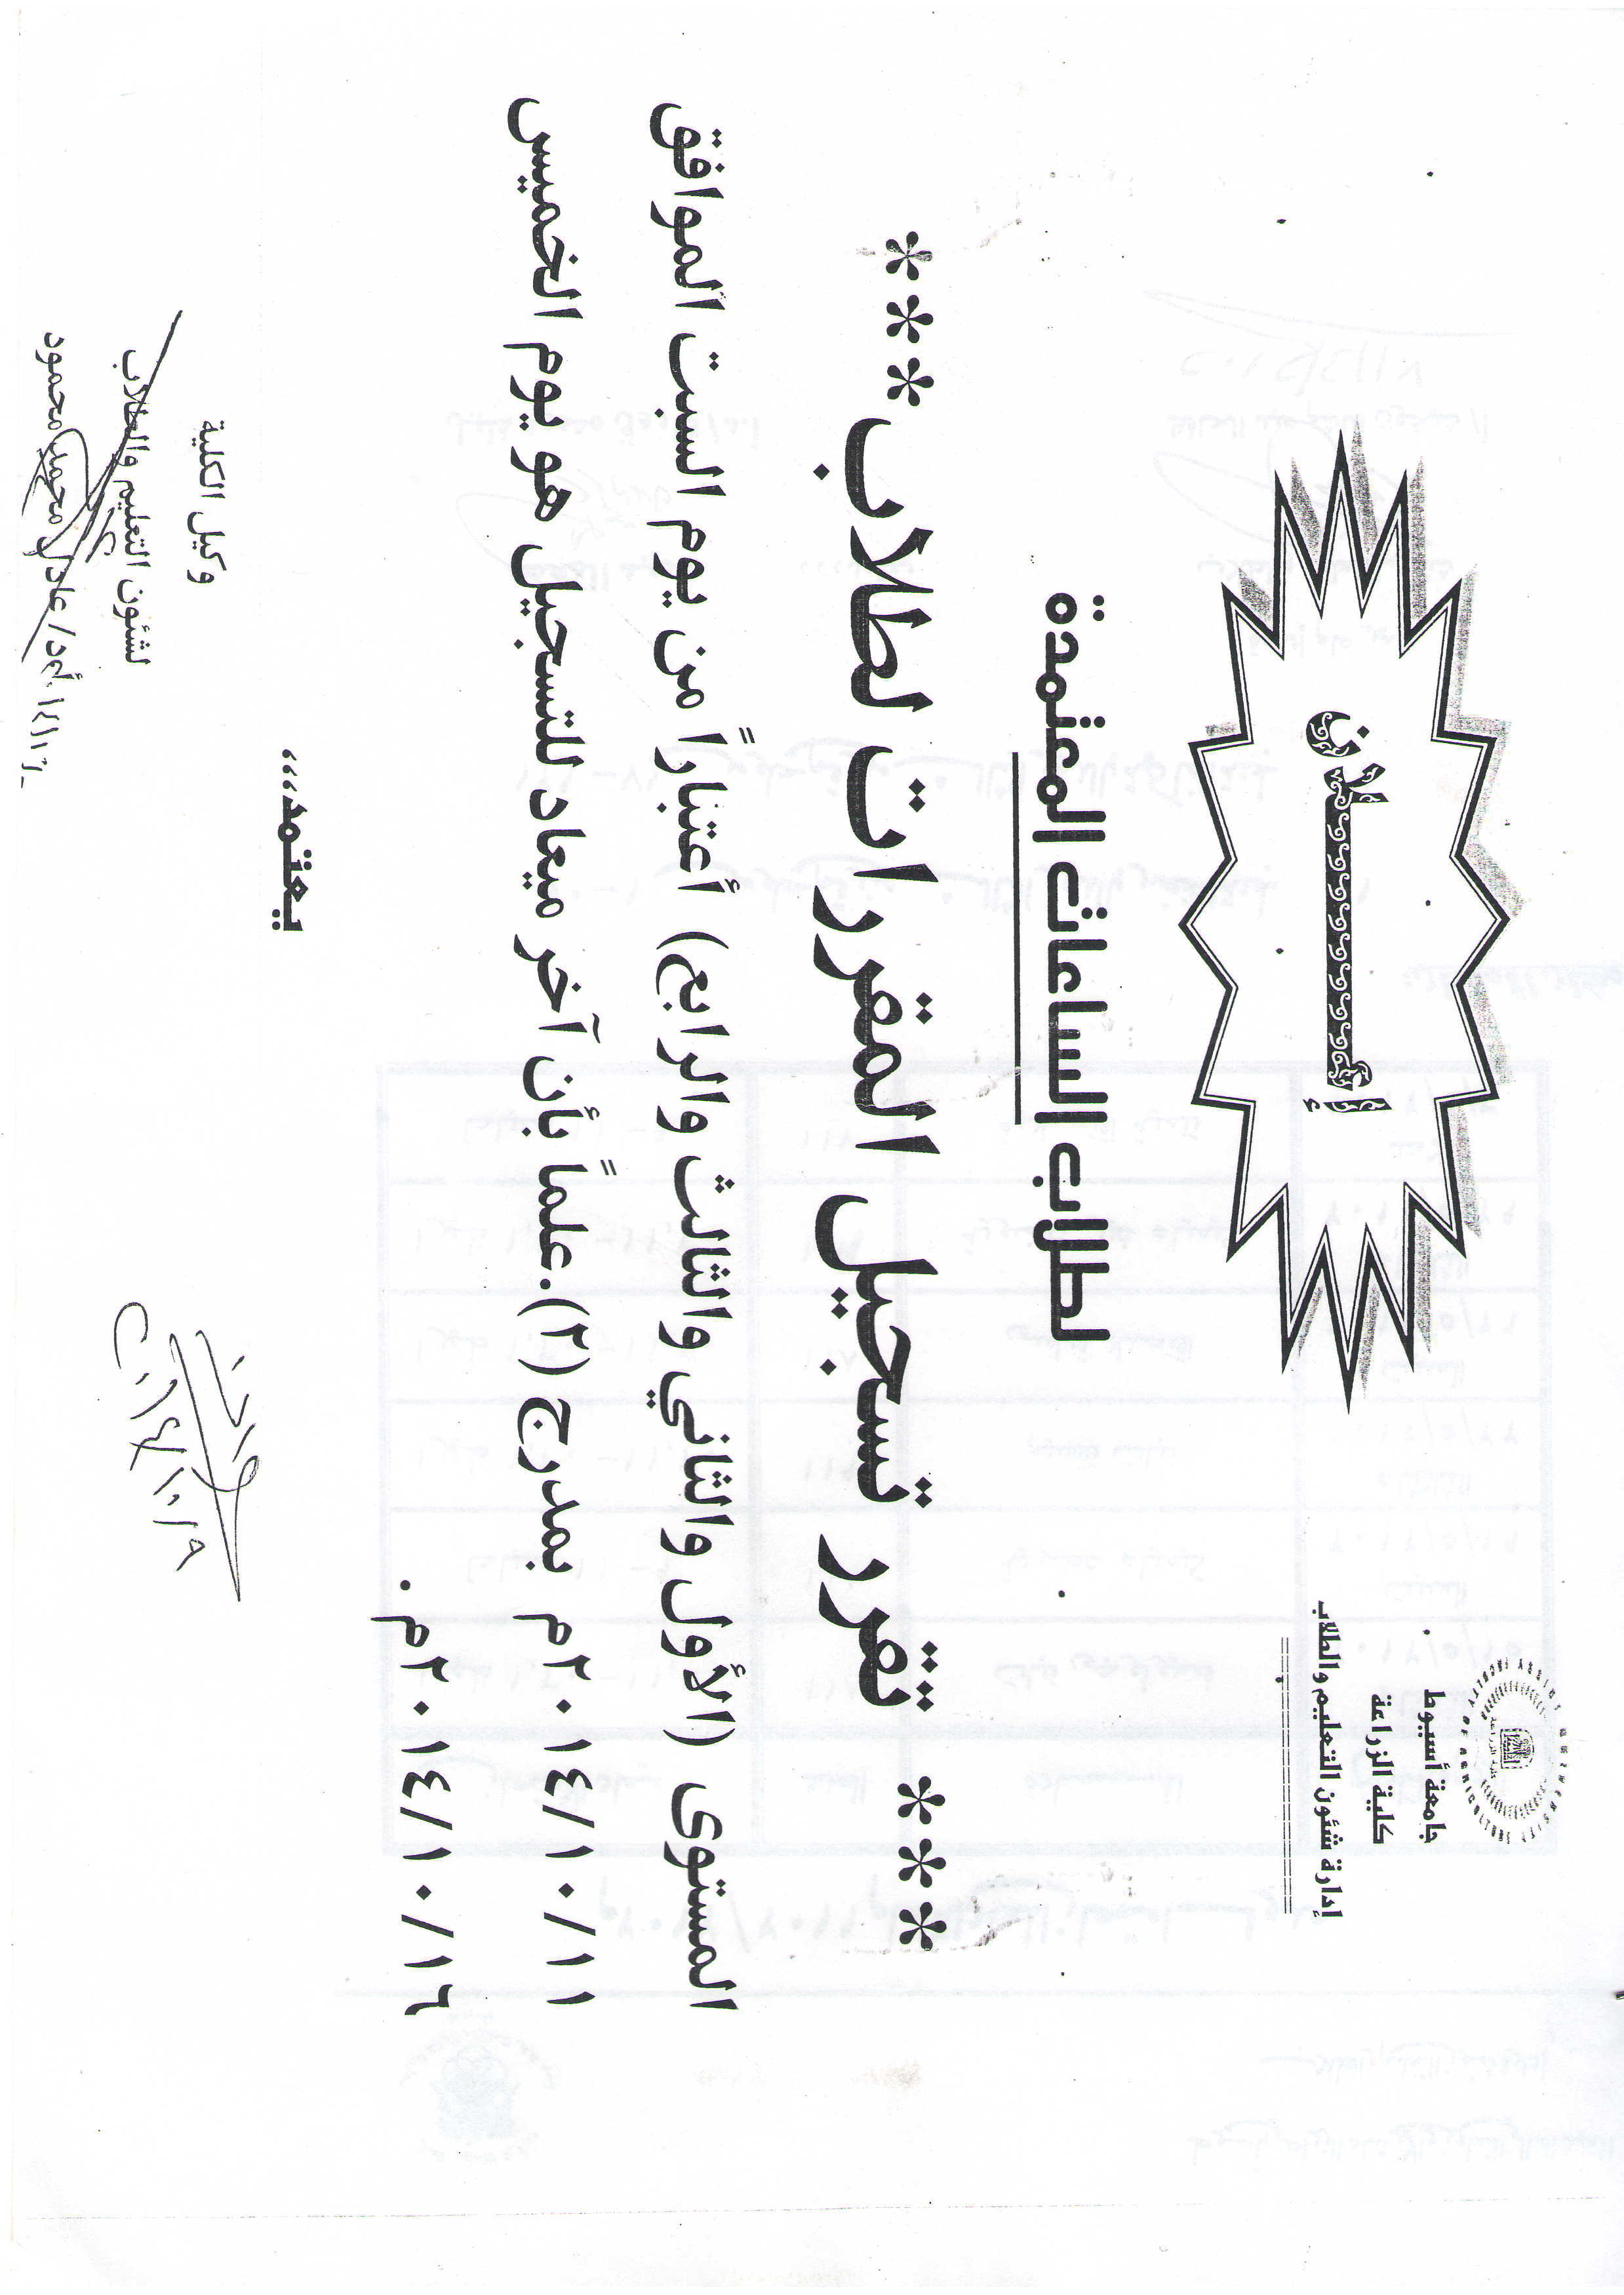 جامعة أسيوط
كلية الزراعة
إدارة شئون التعليم والطلاب
إعلان
لطلاب الساعات المعتمدة
*** يتقرر تسجيل المقررات لطلاب ***
المستوى (الأول والثاني والثالث والرابع) أعتباراً من يوم السبت الموافق
٢٠١٤/١٠/١١م بمدرج (٢).علماً بأن آخر ميعاد للتسجيل هو يوم الخميس
٢٠١٤/١٠/١٦م.
يعتمد،،،
وكيل الكلية
لشئون التعليم والطلاب
أ.د/ عادل محمد محمود